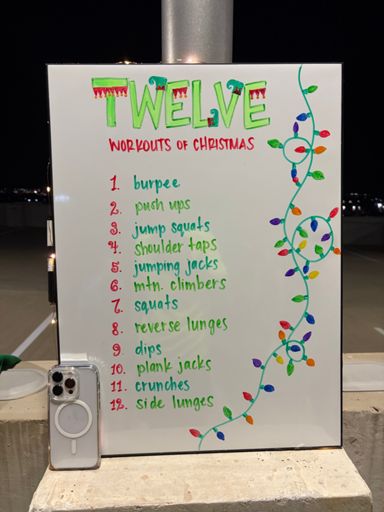 TWELVE
WORKOUTS OF CHRISTMAS
1. burpee
2. push ups
3. jump squats
4. shoulder taps
5. jumping jacks
6. mtn. climbers
7. squats
8. reverse lunges
9. dips
10. plank jacks
11. crunches
12. side lunges